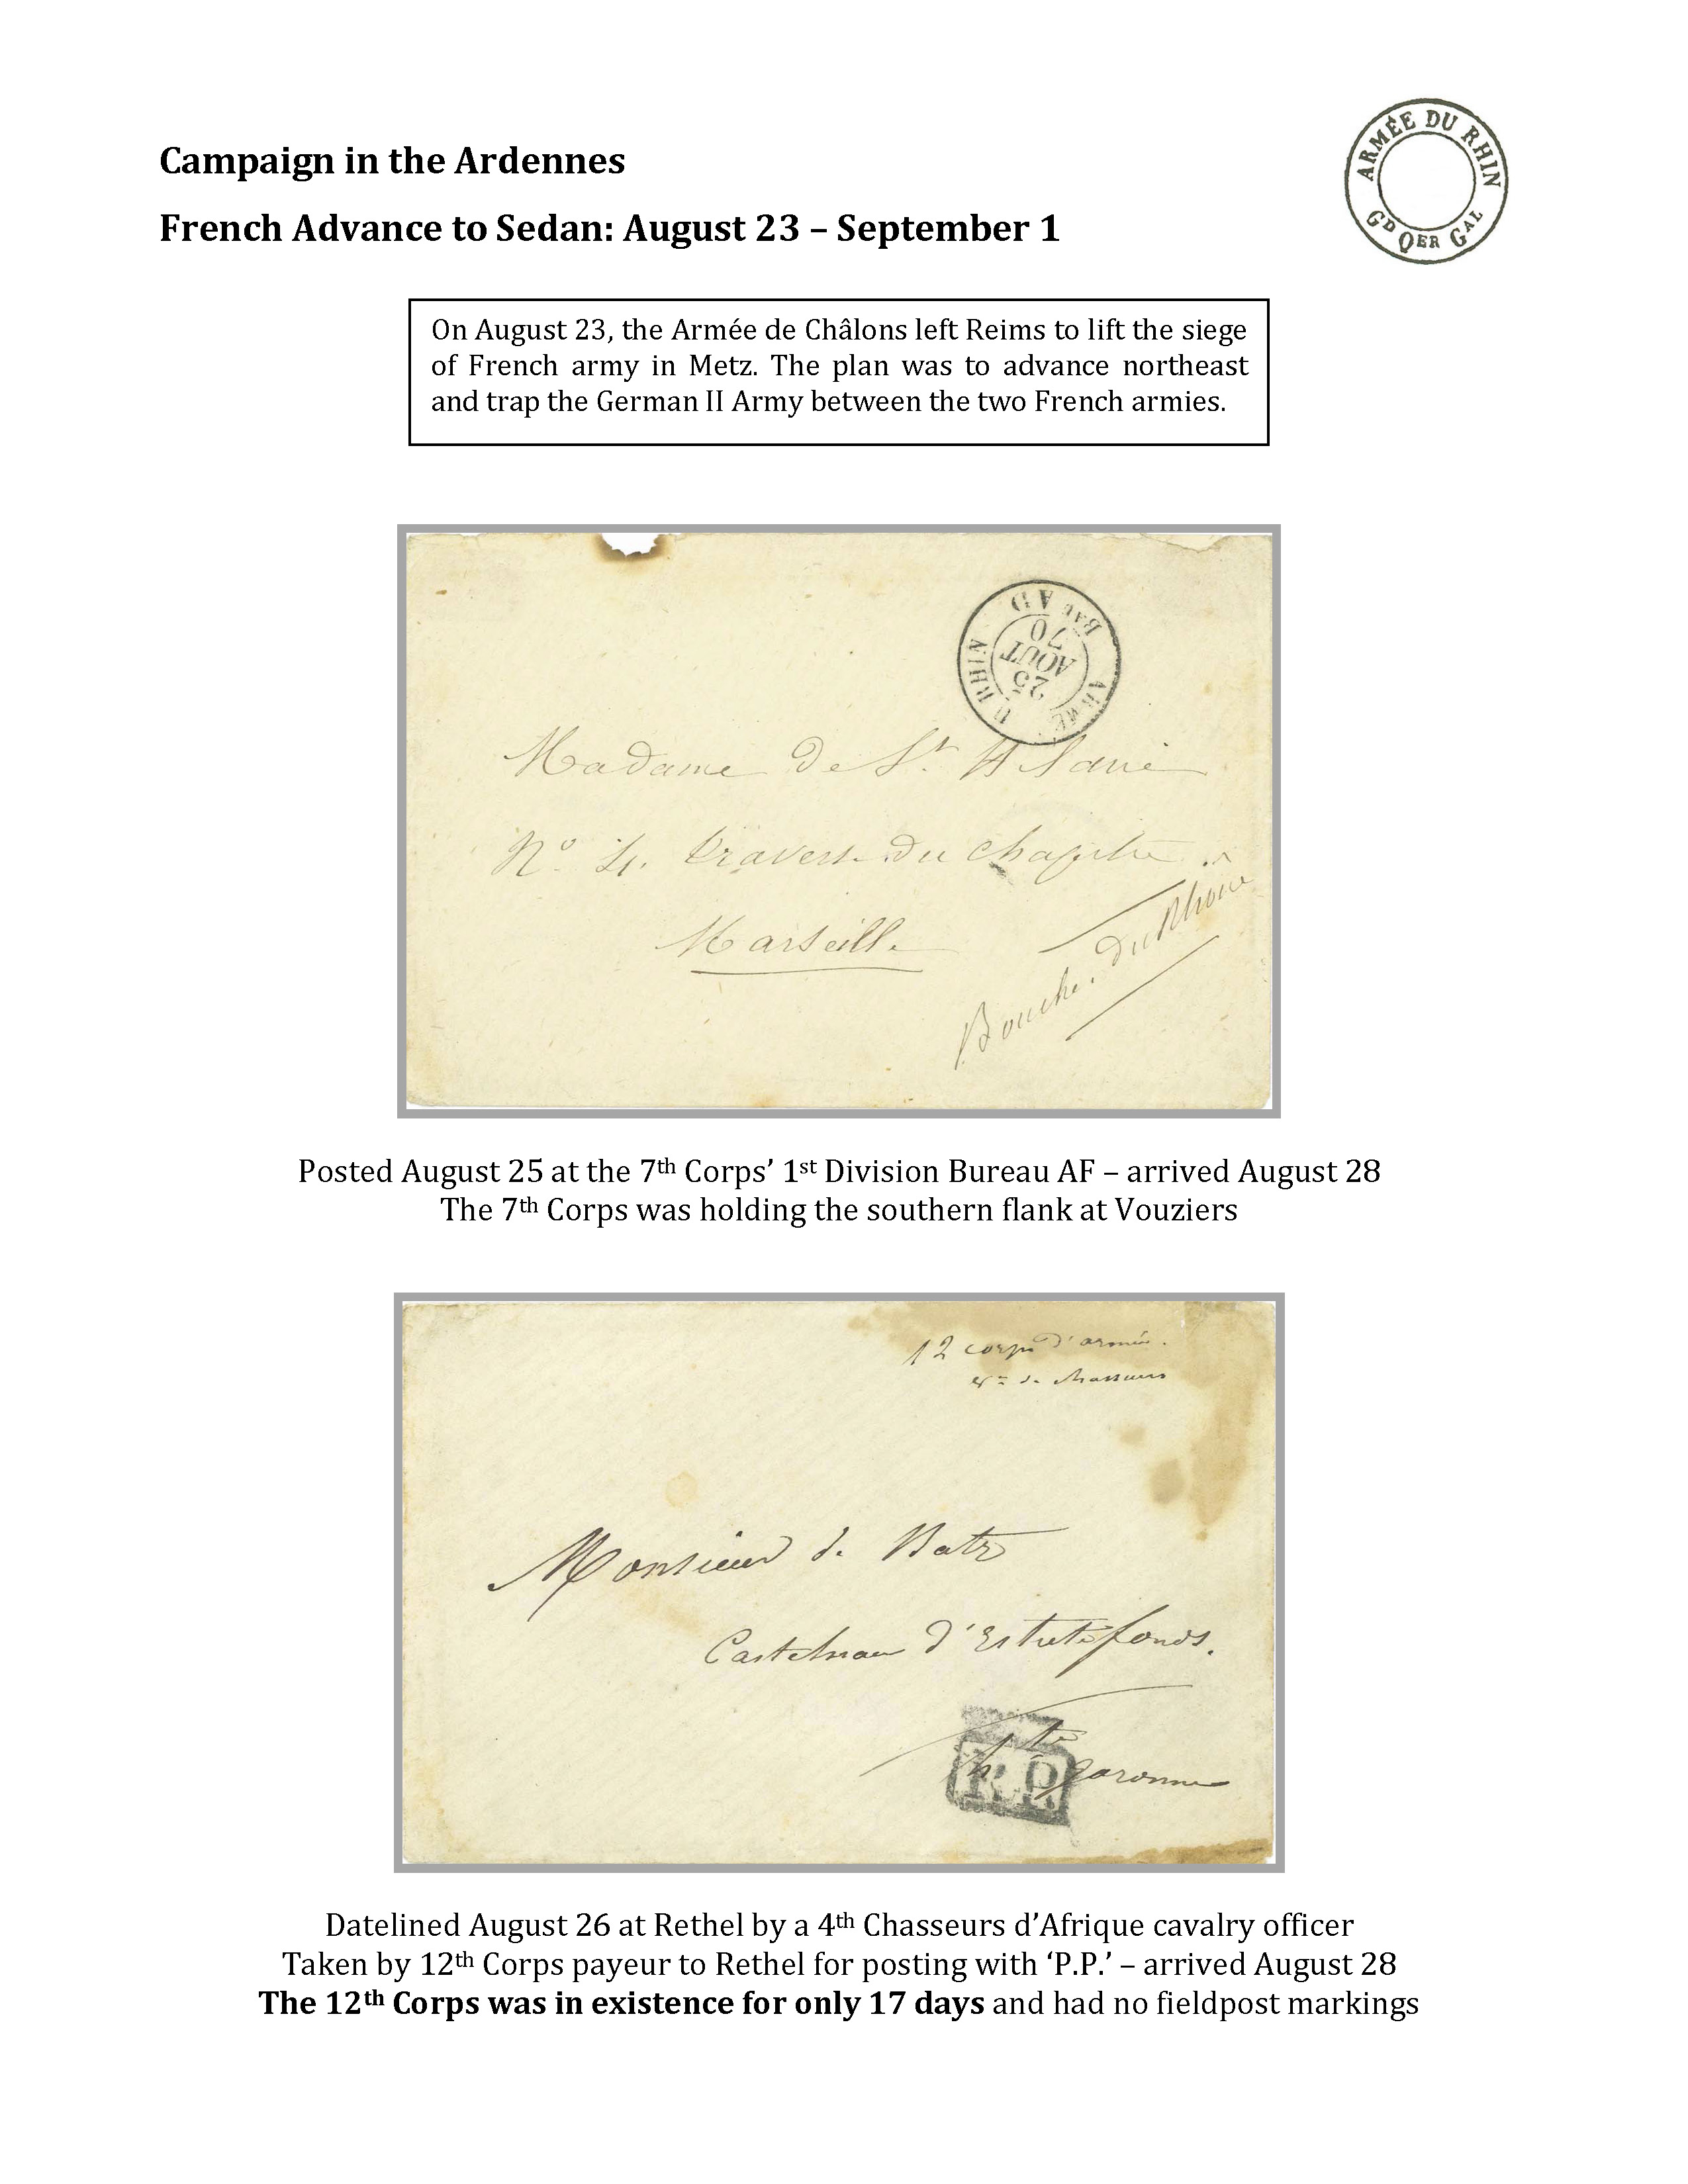 Campaign in the Ardennes
ARMÉE DU RHIN
GD QER GAL
French Advance to Sedan: August 23 – September 1
On August 23, the Armée de Châlons left Reims to lift the siege
of French army in Metz. The plan was to advance northeast
and trap the German II Army between the two French armies.
ARMÉ U RHIN
25
AOUT
70
Bau AD
Madame de St
No 4. travers du chapitre
Marseille
Bouche du Rhone
Posted August 25 at the 7th Corps’ 1st Division Bureau AF – arrived August 28
The 7th Corps was holding the southern flank at Vouziers
12 corps d'armée.
de chasseurs
Monsieur de Batz
Castelnau d'Estretefonds.
hte garonne
P.P.
Datelined August 26 at Rethel by a 4th Chasseurs d’Afrique cavalry officer
Taken by 12th Corps payeur to Rethel for posting with ‘P.P.’ – arrived August 28
The 12th Corps was in existence for only 17 days and had no fieldpost markings